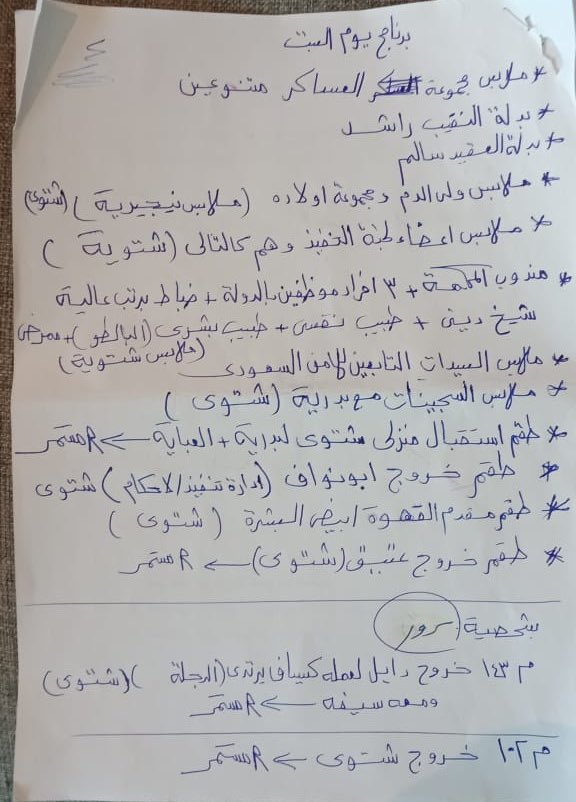 برنامج يوم السبت
* ملابس مجموعة العساكر متنوعين
* بدلة النقيب راشد
* بدلة العقيد سالم
* ملابس ولى الدم ومجموعة اولاده (ملابس نيجيرية) (شتوى)
* ملابس اعضاء لجنة التنفيذ وهم كالتالى (شتوية)
مندوب المحكمة + ٣ افراد موظفين بالدولة + ضباط برتب عالية
شيخ دينى + طبيب نفسى + طبيب بشرى (البالطو) + ممرض
(ملابس شتوية)
* ملابس السيدات التابعين للامن السعودى
* ملابس السجينات مع بدرية (شتوى)
* طقم استقبال منزلى شتوى لبدرية + العباية ← R مستمر
* طقم خروج ابونواف (ادارة تنفيذ الاحكام) شتوى
* طقم مقدم القهوة ابيض البشرة (شتوى)
* طقم خروج عتيق (شتوى) ← R مستمر
شخصية
م ١٤٣ خروج دايل لعمله كسياف يرتدى (الدجلة) (شتوى)
ومعه سيفه ← R مستمر
م ١٠٢ خروج شتوى ← R مستمر